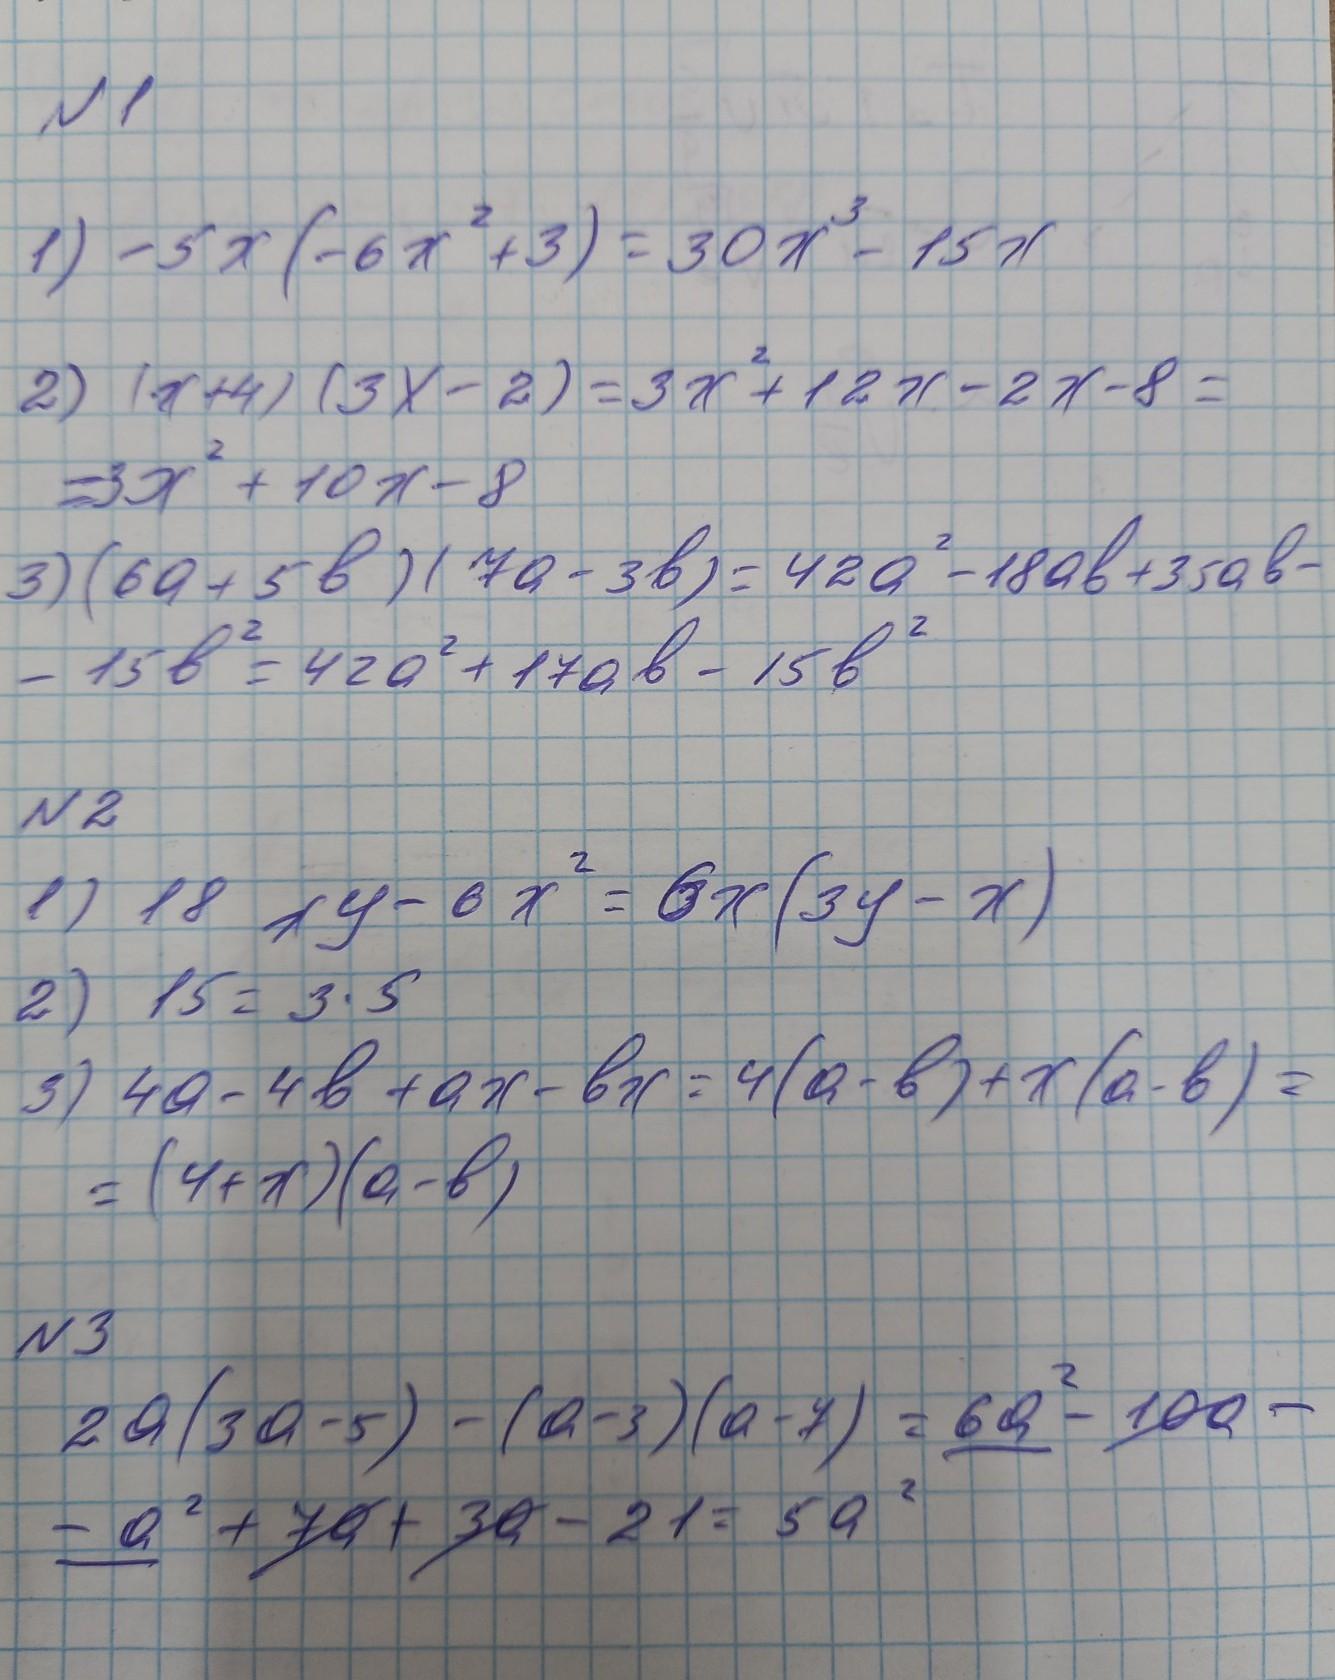 №1
1) -5x(-6x²+3) = 30x³ - 15x
2) (x+4) (3x-2) = 3x² + 12x - 2x - 8 =
= 3x² + 10x - 8
3) (6a+5b)(7a-3b) = 42a² - 18ab + 35ab -
- 15b² = 42a² + 17ab - 15b²
№2
1) 18 xy - 6x² = 6x(3y - x)
2) 15 = 3·5
3) 4a - 4b + ax - bx = 4(a-b) + x(a-b) =
= (4+x)(a-b)
№3
2a(3a-5) - (a-3)(a-7) = 6a² - 10a -
- a² + 7a + 3a - 21 = 5a²